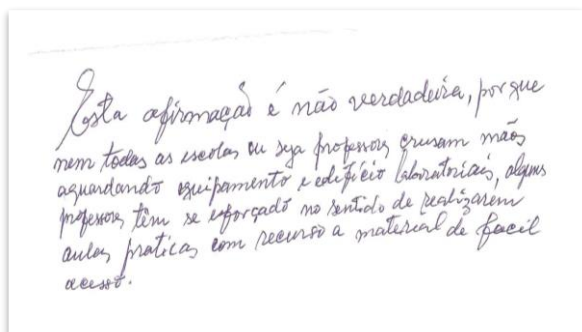 Esta afirmação é não verdadeira, porque
nem todas as escolas ou seja professores crusam mãos
aguardando equipamento e edifício laboratoriais, alguns
professores têm se esforçado no sentido de realizarem
aulas praticas com recurso a material de facil
acesso.